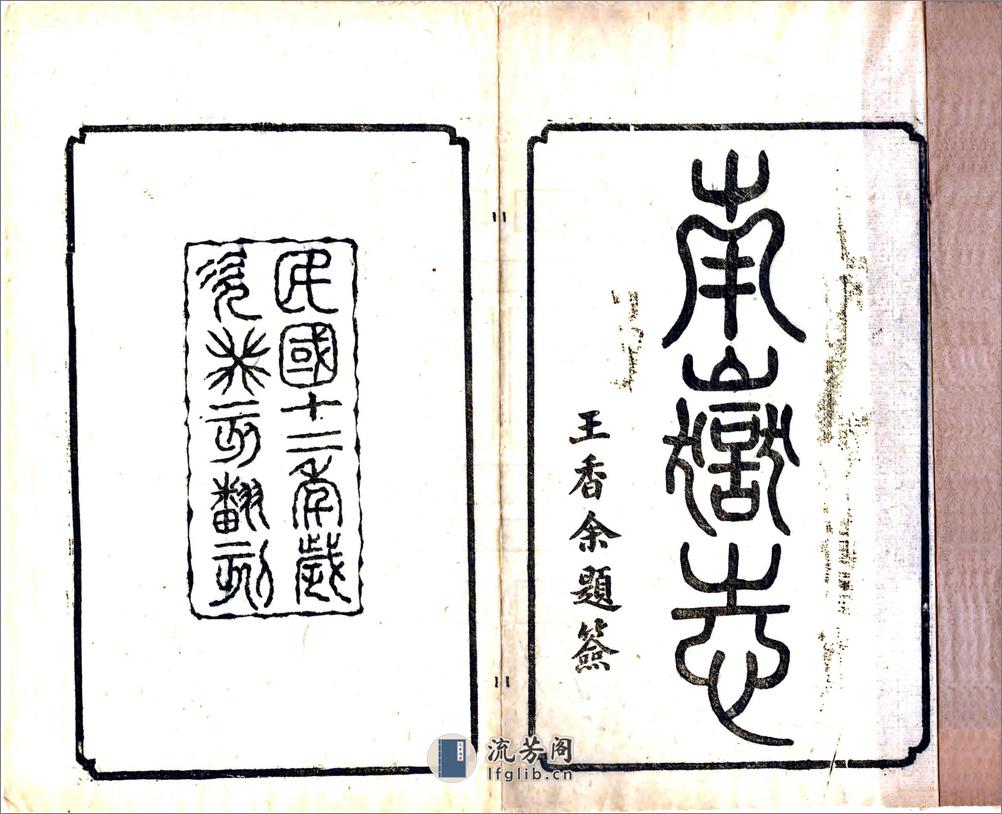 南嶽志
王香余題簽
民國十二年歲
次癸亥翻刻
流芳阁
lfglib.cn